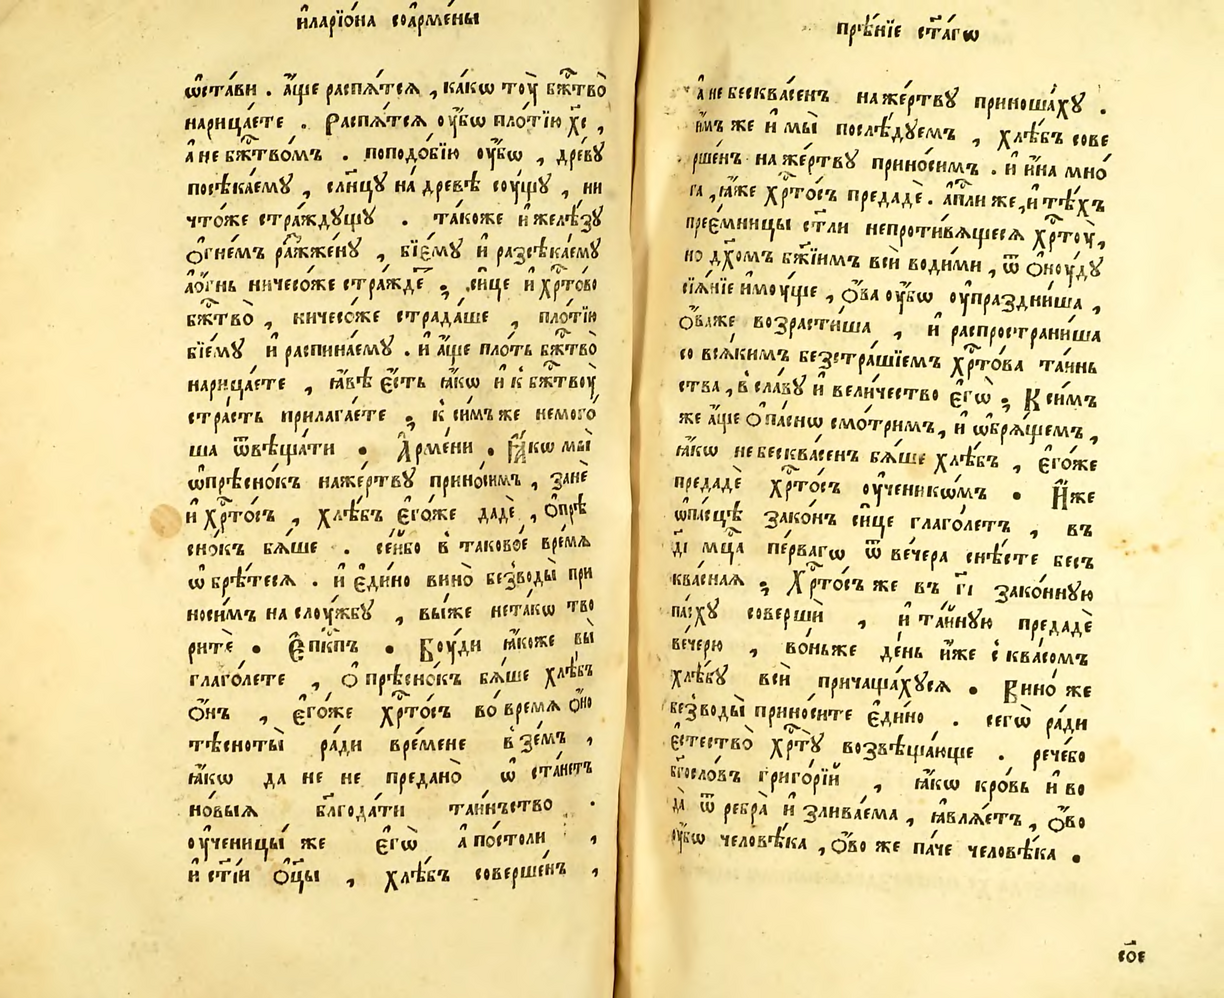 и҆ларїо́на соа҆рме́ны
ѡ҆ста́ви . а҆́ще распѧ́тсѧ , ка́кѡ тоу̀ бж҃тво̀
нарица́ете . Распѧ́тсѧ оу҆́бѡ пло́тїю х҃с ,
а҆ не бж҃тво́мъ . поподо́бїю оу҆́бѡ , дре́вꙋ
посѣка́емꙋ , сл҃нцꙋ на́ древѣ соу́щꙋ , ни
что́же стра́ждꙋщꙋ . та́коже и҆ желѣ́зꙋ
о҆гне́мъ ражже́нꙋ , бїе́мꙋ и҆ разсѣка́емꙋ
а҆о҆́гнь ничесо́же стра́жде , си́це и҆ хр҃то́во
бж҃тво̀ , ничесо́же страда́ше , пло́тїю
бїе́мꙋ и҆ распина́емꙋ . и҆ а҆́ще пло́ть бж҃тво̀
нарица́ете , ꙗ҆́вѣ є҆́сть ꙗ҆́кѡ и҆ к̾ бж҃твоу̀
стра́сть прилага́ете , к̾ си́мъ же немого́
ша ѿвѣща́ти . А҆рме́ни . Ꙗ҆́кѡ мы̀
ѡ҆прѣсно́къ наже́ртвꙋ прино́симъ , зане́
и҆ хр҃то́съ , хлѣ́бъ є҆го́же дадѐ , ѻ҆прѣ
сно́къ бѧ́ше . се́йбо в̾ таково́е вре́мѧ
ѡ҆брѣ́тесѧ . и҆ є҆ди́но вино̀ безводы̀ при
но́симъ на слоу́жбꙋ , вы́же нета́кѡ тво
ритѐ . Є҆пк҃пъ . Боу́ди ꙗ҆́коже вы̀
глаго́лете , ѻ҆ прѣсно́къ бѧ́ше хлѣ́бъ
ѻ҆́нъ , є҆го́же хр҃то́съ во вре́мѧ ѻ҆́но
тѣсноты̀ ра́ди вре́мене в̾зе́мъ ,
ꙗ҆́кѡ да не не предано̀ ѡ҆ ста́нетъ
но́выѧ бл҃года́ти таи́нъство .
оу҆ченицы́ же є҆гѡ̀ а҆ по́столи ,
и҆ ст҃і́и ѻ҆ц҃ы̀ , хлѣ́бъ соверше́нъ ,
прѣ́нїе ст҃а́гѡ
а҆ не бесква́сенъ наже́ртвꙋ приноша́хꙋ .
и҆́мъ же и҆ мы̀ послѣ́дꙋемъ , хлѣ́бъ сове
рше́нъ на же́ртвꙋ прино́симъ . и҆ и҆́на мно́
га , ꙗ҆́же хр҃то́съ предадѐ . а҆п҃ли же , и҆ тѣ́хъ
прее́мницы ст҃ли непротивѧ́щесѧ хр҃тоу̀ ,
но дх҃омъ бж҃їимъ всѝ води́ми , ѿ ѻ҆ноу́дꙋ
сїѧ́нїе и҆мꙋ́ще , ѻ҆́ва оу҆́бѡ оу҆праздни́ша ,
ѻ҆́важе возрасти́ша , и҆ распространи́ша
со всѧ́кимъ безстра́шїемъ хр҃то́ва та́инь
ства , в̾ сла́вꙋ и҆ вели́чество є҆гѡ̀ , К̾ си́мъ
же а҆́ще ѻ҆па́снѡ смо́тримъ , и҆ ѡ҆брѧ́щемъ ,
ꙗ҆́кѡ небесква́сенъ бѧ́ше хлѣ́бъ , є҆го́же
предадѐ хр҃то́съ оу҆ченикѡ́мъ . И҆́же
ѡ҆па́сцѣ зако́нъ си́це глаго́летъ , въ
д҃і мц҃а пе́рвагѡ ѿ ве́чера снѣ́сте бесъ
ква́снаѧ , Хр҃то́съ же въ г҃і зако́ннꙋю
па́схꙋ совершѝ , и҆ та́йнꙋю предадѐ
ве́черю , во́ньже де́нь и҆́же с̾ ква́сомъ
хлѣ́бꙋ всѝ причаща́хꙋсѧ . Вино́ же
безводы̀ прино́сите є҆ди́но . сегѡ̀ ра́ди
є҆стество̀ хр҃тꙋ̀ возвѣща́юще . рече́бо
бг҃осло́въ григо́рїй , ꙗ҆́кѡ кро́вь и҆ во
да̀ ѿ ребра̀ и҆ злива́ема , ꙗ҆влѧ́етъ , ѻ҆́во
оу҆́бѡ человѣ́ка , ѻ҆́во же па́че человѣ́ка .
со҃є